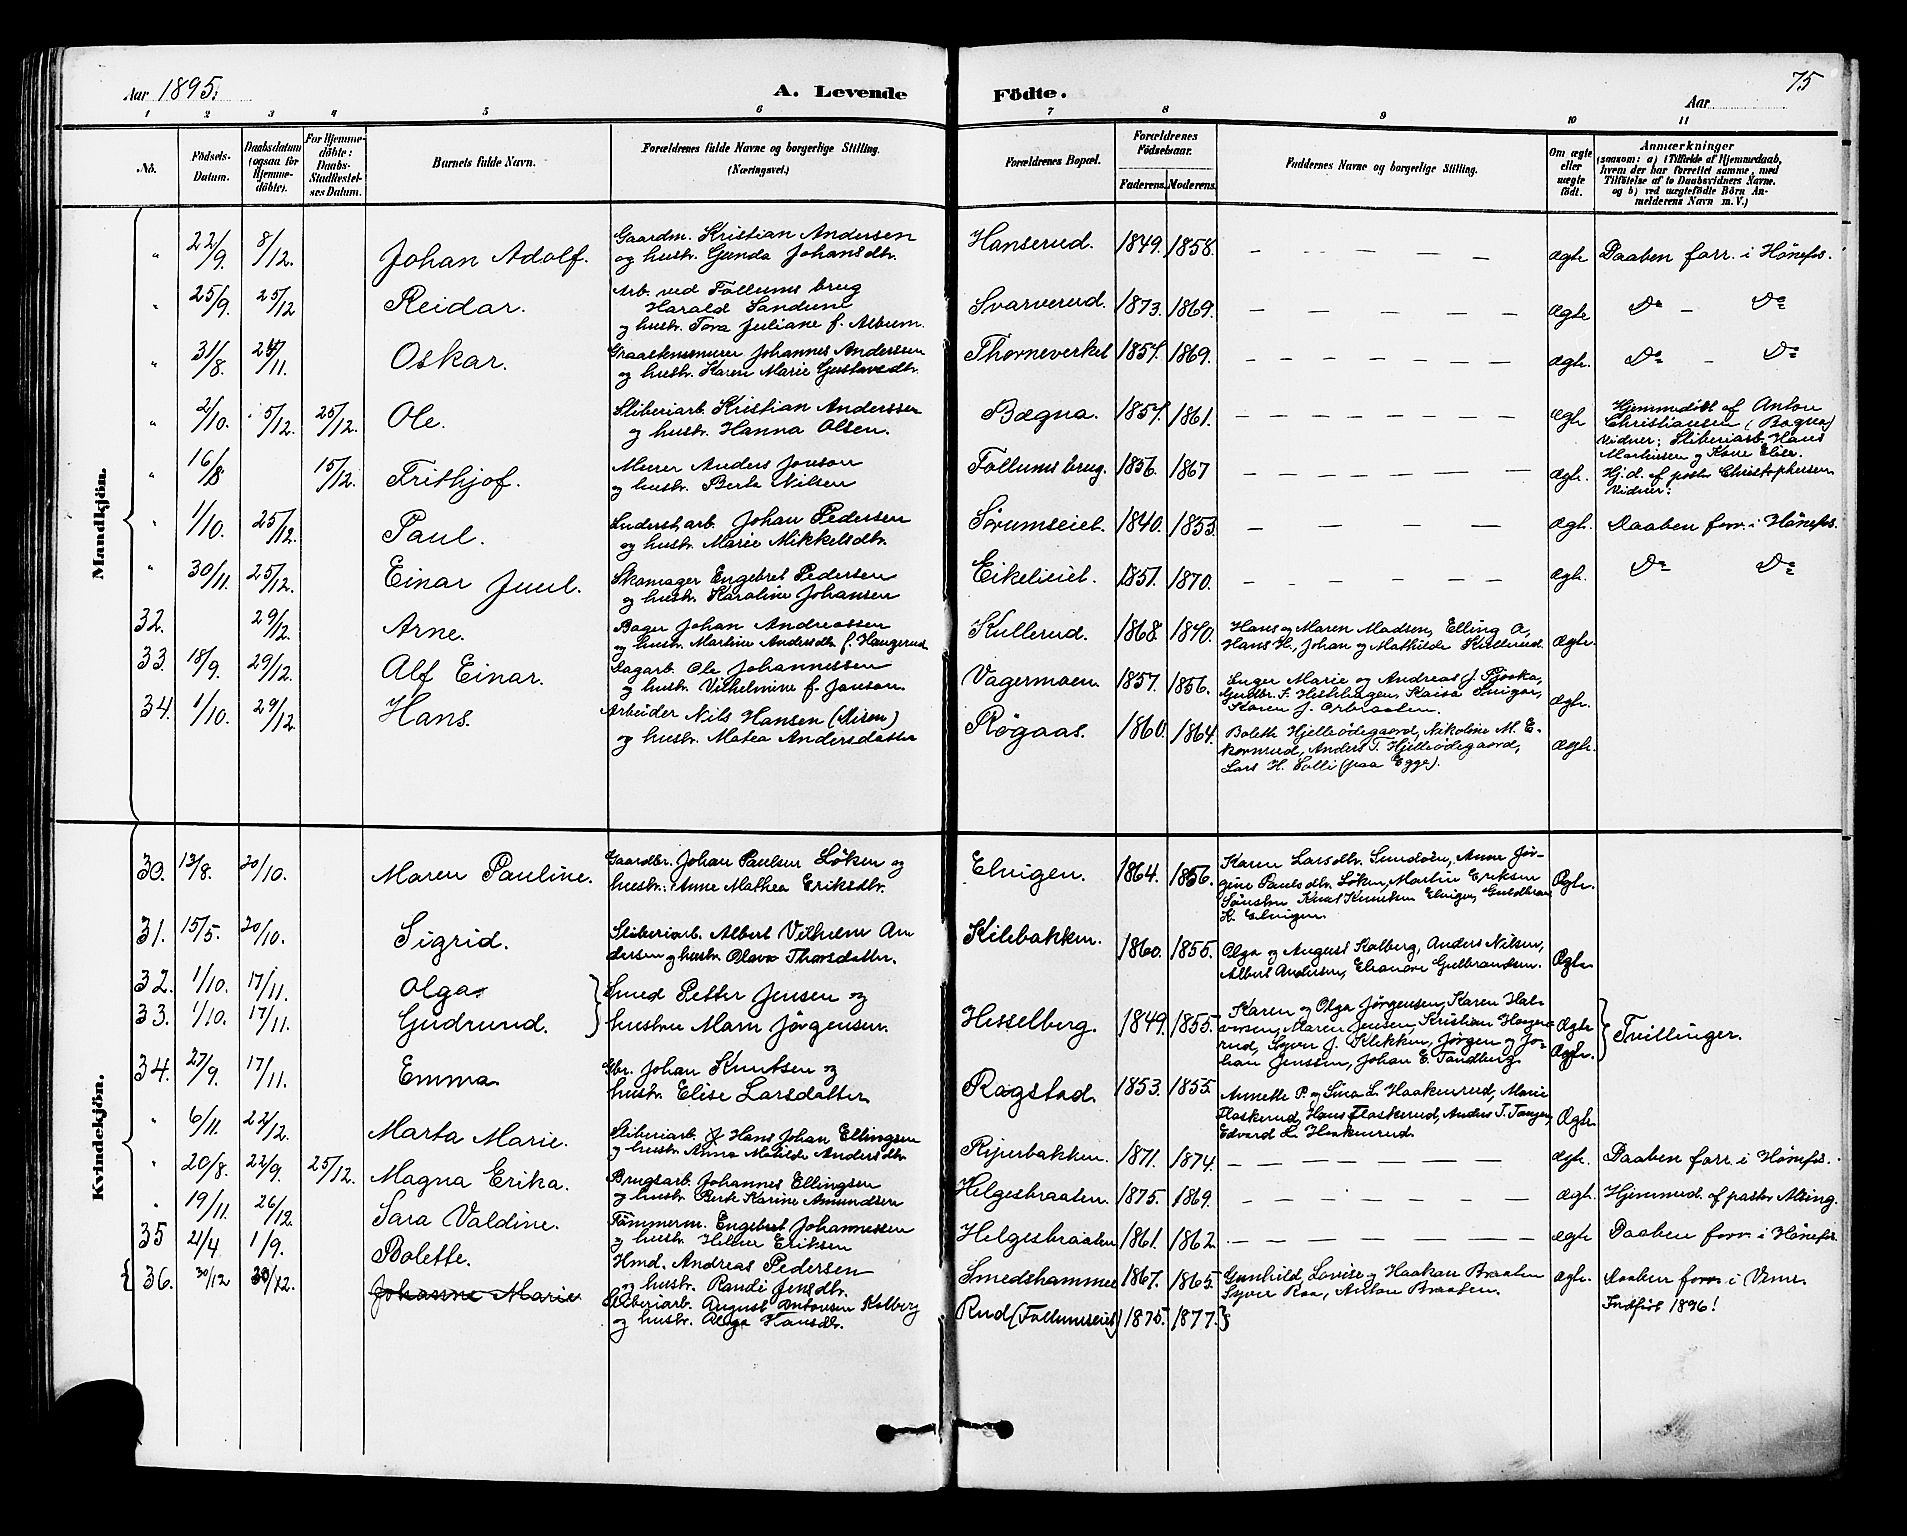 Aar 1895.
A. Levende Födte.
75
Aar
1 2 3 4 5 6 7 8 9 10 11
No.
Födsels-Datum.
Daabsdatum (ogsaa for Hjemme-döbte).
For Hjemme-döbte: Daabs-Stadfæstel-ses Datum.
Barnets fulde Navn.
Forældrenes fulde Navne og borgerlige Stilling. (Næringsvei.)
Forældrenes Bopæl.
Forældrenes Födselsaar.
Faderens. Moderens.
Faddernes Navne og borgerlige Stilling.
Om ægte eller uægte födt.
Anmærkninger
(saasom: a) i Tilfælde af Hjemmedaab,
hvem der har forrettet samme, med
Tilföielse af to Daabsvidners Navne,
og b) ved uægtefödte Börn An-
melderens Navn m. V.)
Mandkjön.
" 22/9 8/12. Johan Adolf. Gaardm. Kristian Andersen
og hustr. Gunda Johansdtr. Hanserud. 1849. 1858. — — — — — ægte Daaben forr. i Hönefos.
" 25/9. 25/12 Reidar. Arb. ved Follums brug
Harald Sandum
og hustr. Tora Juliane f. Album. Svarverud. 1873. 1869. — — — — — — ægte Do — Do
" 31/8. 24/11. Oskar. Graasteensmurer Johannes Andersen
og hustr. Karen Marie Gustavsdtr. Thorneverket 1857. 1869. — — — — — — — ægte. Do — Do
" 2/10. 5/12. 25/12. Ole. Sliberiarb. Kristian Anderssen
og hustr. Hanna Olsen. Bægna. 1857. 1861. — — — — — — — ægte Hjemmedöbt af Anton
Christiansen (Bægna)
Vidner: Sliberiarb. Hans
Martinsen og Kone Elise.
" 16/8 15/12. Frithjof. Murer Anders Jonson
og hustr. Berte Nilsen Follums brug. 1856. 1867 — — — — — — ægte. Hj.d. af pastor Christophersen
Vidner:
" 1/10. 25/12. Paul. arb. Johan Pedersen
og hustr. Marie Mikkelsdtr. Sørumseiet. 1840. 1853. — — — — ægte. Daaben forr. i Hönefos.
" 30/11. 25/12. Einar Juul. Skomager Engebret Pedersen
og hustr. Karoline Johansen Eikelieiet. 1851. 1870. — — — — — — ægte. Do Do
32. 29/12. Arne. Bager Johan Andreassen
og hustr. Martine Andersdtr. f. Haugerud Kullerud. 1868. 1840. Hans og Maren Madsen, Elling O,
Hans H., Johan og Mathilde Kullerud. ægte.
33. 18/9. 29/12. Alf Einar. Dagarb. Ole Johannessen
og hustr. Vilhelmine f. Jonson. Vagermoen. 1857. 1856. Inger Marie og Andreas J. Pjaaka,
Gudbr. F. Kaisa
Karen J. ægte.
34. 1/10. 29/12. Hans. Arbeider Nils Hansen
og hustr. Matea Andersdatter Røgaas. 1860. 1864. Bolette Hjelleödegaard, Nikoline M. E-
kornrud, Anders T. Hjelleödegaard,
Lars H. Solli (paa Egge). ægte.
Kvindekjön.
30. 13/8. 20/10. Maren Pauline. Gaardbr. Johan Paulsen Löken og
hustr.: Anne Mathea Eriksdtr. Elvigen. 1864. 1856. Karen Larsdtr. Sundöen, Anne Jør-
gine Paulsdtr. Löken, Martin Eriksen
Knut Knutsen Elvigen, Guldbran
K. Elvigen. Ægte.
31. 15/5. 20/10. Sigrid. Sliberiarb. Albert Vilhelm An-
dersen og hustr. Olava Thorsdatter. Kilebakken. 1860. 1855. Olga og August Kolberg, Anders Nilsen,
Albert Andersen, Eleanore Gulbrandsen. Ægte.
32. 1/10. 17/11. Olga. Smed Petter Jensen og
33. 1/10. 17/11. Gudrund. hustru Marn Jörgensen. Hesselberg. 1849. 1855. Karen og Olga Jørgensen, Karen Hal-
vorsen, Maren Jensen, Kristian Hager-
rud, Syver J. Klekken, Jørgen og Jo-
han Jenssen, Johan E. Tandberg. Ægte Ægte. Tvillinger.
34. 27/9. 17/11. Emma. Gbr. Johan Knutsen og
hustr. Elise Larsdatter. Ragstad. 1853. 1855. Annette P. og Sina L. Haakenrud, Marie
Flaskerud, Hans Flaskerud, Anders T. Tangen,
Edvard L. Haakenrud. Ægte.
" 6/11. 22/12. Marta Marie. Sliberiarb. Hans Johan Ellingsen
og hustr. Anna Matilde Andersdtr. Riperbakken. 1871. 1874. — — — — — — ægte. Daaben forr. i Hönefos.
" 20/8. 22/9. 25/12. Magna Erika. Brugsarb. Johannes Ellingsen
og hustr. Berte Karine Amundsen Helgesbraaten. 1875. 1869. — — — — — — ægte. Hjemmed. af pastor Alsing.
" 19/11. 26/12. Sara Valdine. Tömmerm. Engebret Johannessen
og hustr. Helene Eriksen Helgesbraaten 1861. 1862. — — — — — — ægte Daaben forr. i Hönefos.
35 21/4. 1/9. Bolette. Hmd. Andreas Pedersen
og hustr. Randi Jensdtr. Smedshammer 1867. 1865. Gunhild, Lovise og Haakan Braaten
Syver Roa, Anton Braaten. ægte. Daaben forr. i Viner.
36. 30/12 30/12. Johanne Marie Sliberiarb. August Antonsen Kolberg
og hustr. Olga Hansdtr. Rud (Follumseiet) 1875. 1877. Indført 1896!